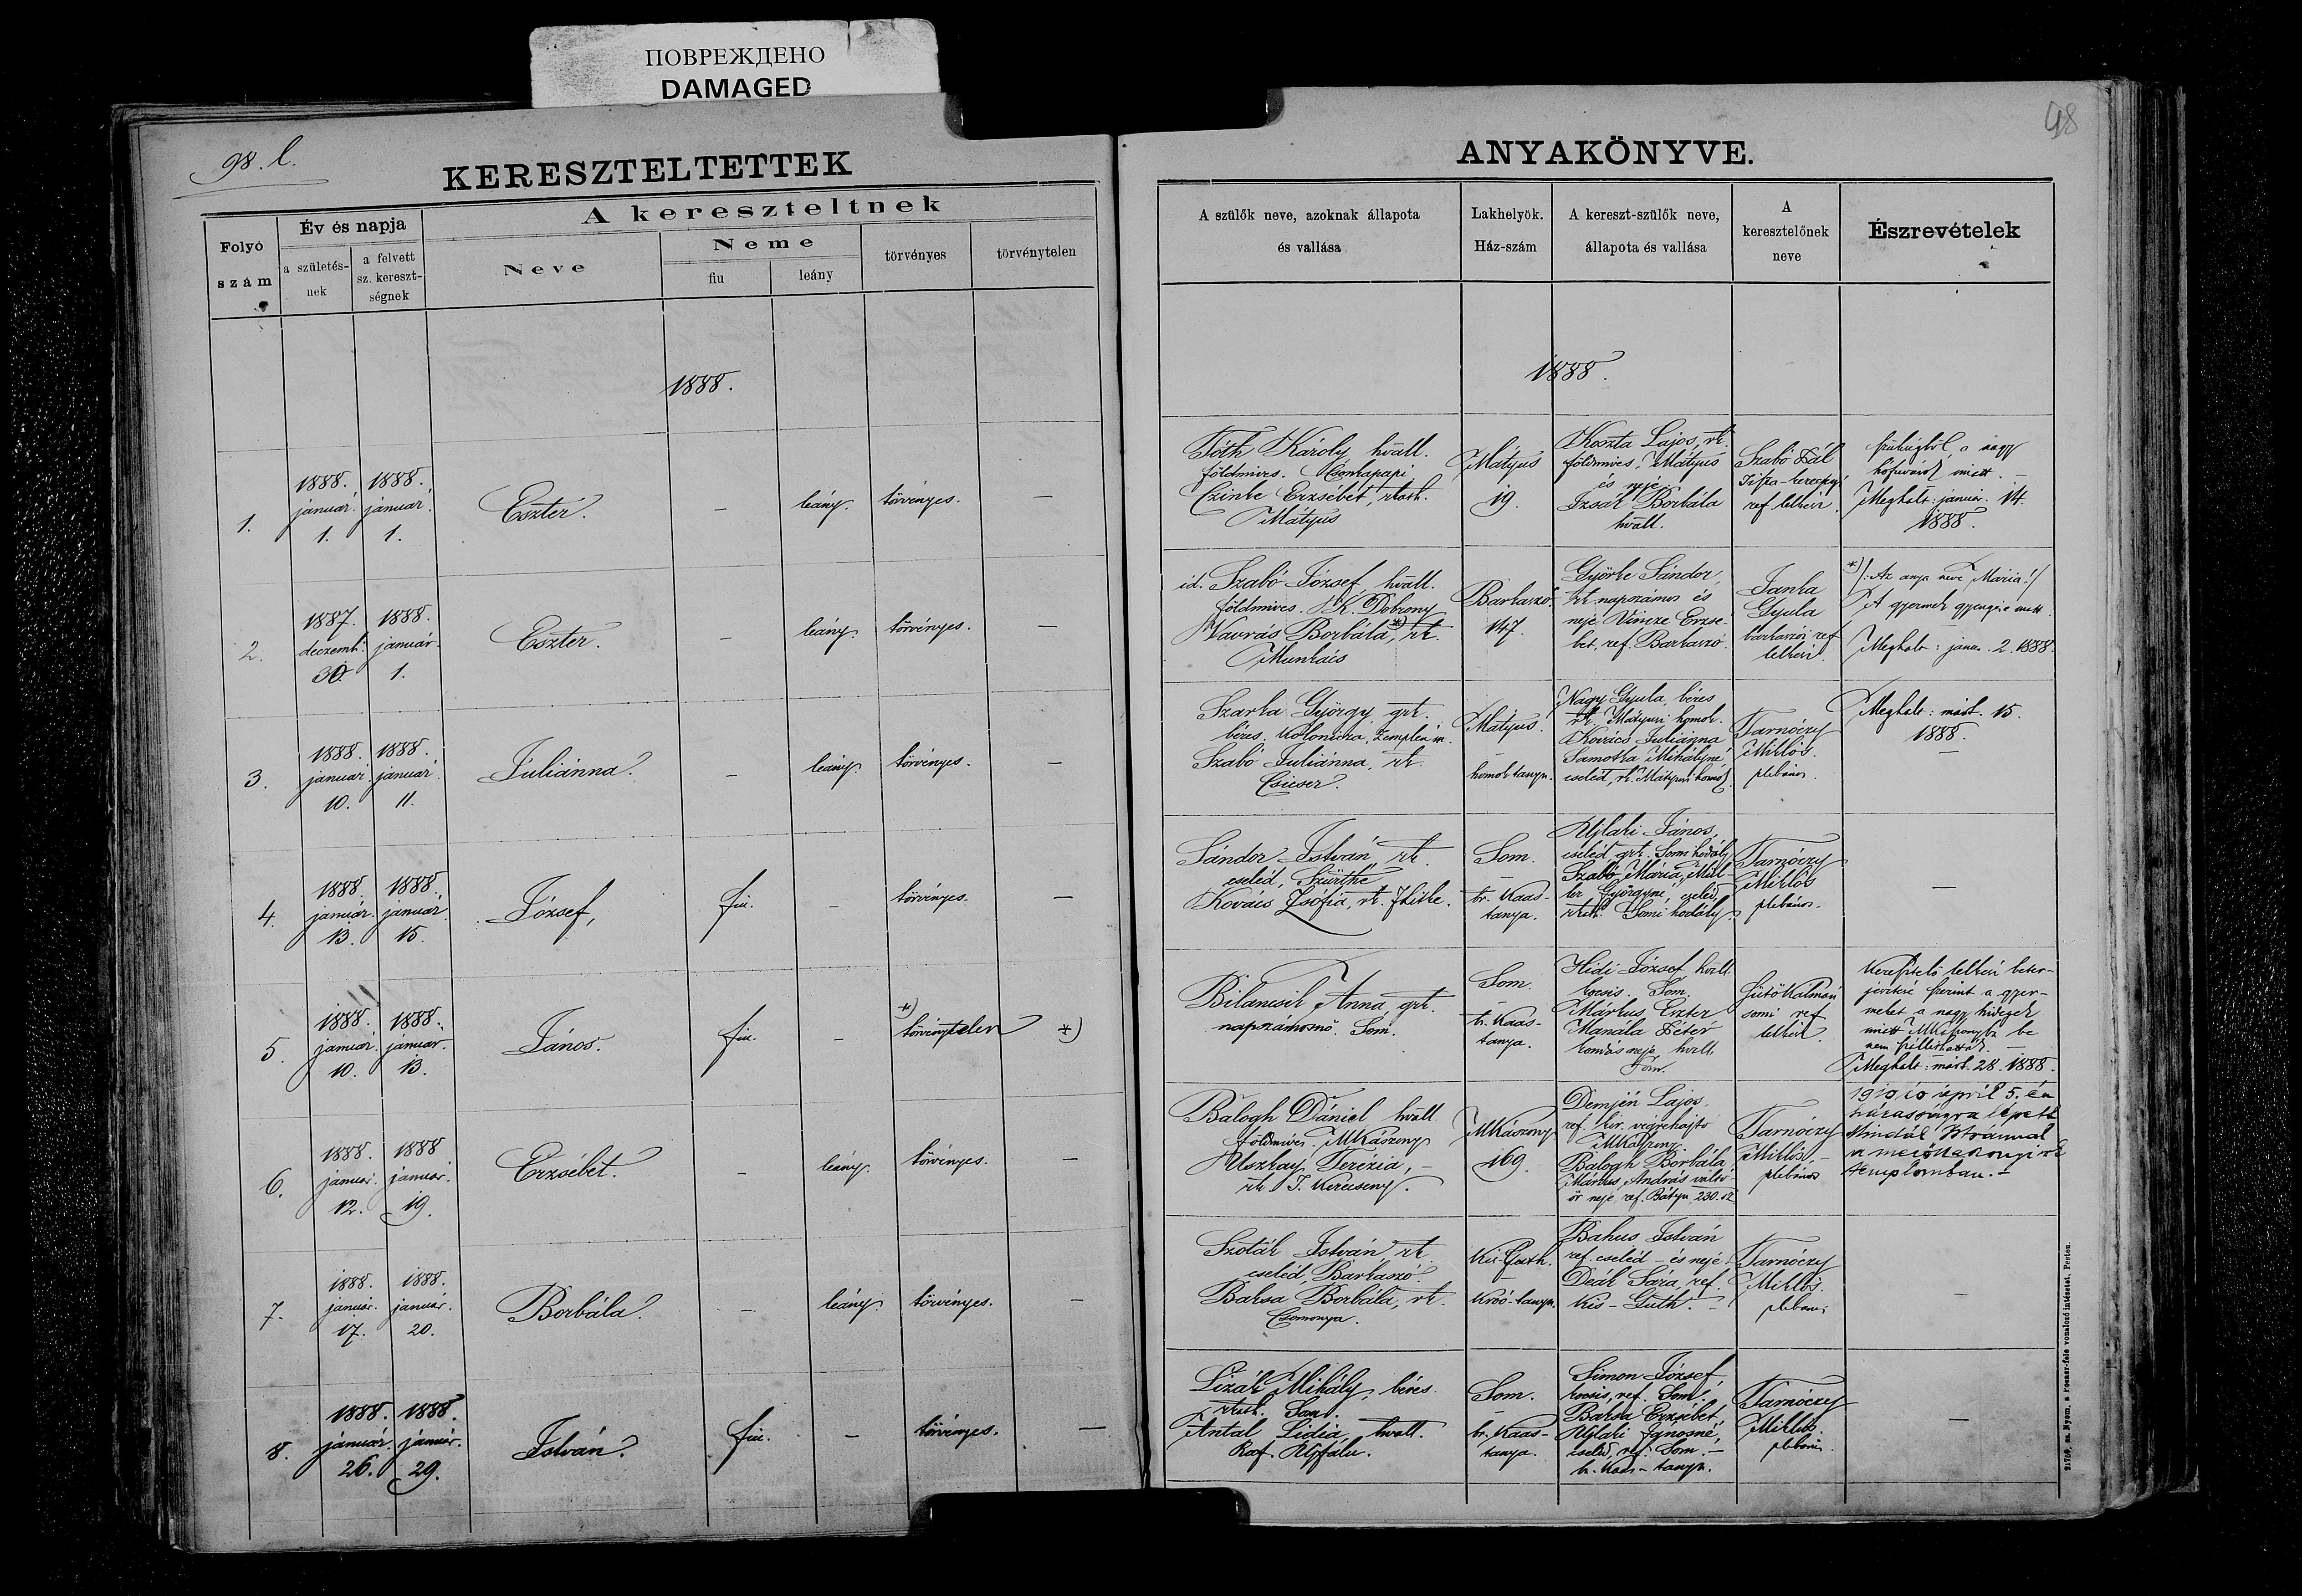 ПОВРЕЖДЕНО
DAMAGED
98. l.
98
KERESZTELTETTEK
ANYAKÖNYVE.
Folyó
szám
Év és napja
a születés-
nek
a felvett
sz. kereszt-
ségnek
A kereszteltnek
Neve
Neme
fiu
leány
törvényes
törvénytelen
A szülők neve, azoknak állapota
és vallása
Lakhelyök.
Ház-szám
A kereszt-szülők neve,
állapota és vallása
A
keresztelőnek
neve
Észrevételek
1888.
1888.
1.
1888.
január.
1.
1888.
január.
1.
Eszter.
–
leány.
törvényes.
–
Tóth Károly hvall.
földmives. Csonkapapi
Czinke Erzsébet, rkath.
Mátyus
Mátyus
19.
Koszta Lajos, rk.
földmives. Mátyus
és neje
Izsák Borbála
hvall.
Szabó Pál
ref lelkész.
a nagy
hófuvások miatt. –
Meghalt: január. 14.
1888.
2.
1887.
deczemb:
30.
1888.
január.
1.
Eszter.
–
leány.
törvényes.
–
id. Szabó József, hvall.
földmives. K. Dobrony
Vavrás Borbála *), rk.
Munkács
Barkaszó.
147.
Györke Sándor,
rk. napszámos és
neje Vincze Erzsé-
bet, ref. Barkaszó.
Janka
Gyula
barkaszói ref
lelkész.
*) /: Az anya neve Mária! :/
A gyermek gyengése miatt.
Meghalt: január. 2. 1888.
3.
1888.
január.
10.
1888.
január.
11.
Juliánna.
–
leány.
törvényes.
–
Szarka György grk.
béres. Kolonicza, Zemplén m.
Szabó Juliánna, rk.
Csicser.
Mátyus.
homok tanya.
Nagy Gyula, béres
rk. Mátyusi homok.
Kovács Juliánna
Samotka Mihályné,
cseléd, rk. Mátyusi homok.
Tarnóczy
Miklós.
plébános.
Meghalt: márt. 15.
1888.
–
4.
1888.
január.
13.
1888.
január.
15.
József,
fiu.
–
törvényes.
–
Sándor István rk.
cseléd, Szürthe
Kovács Zsófia, rk.
Som.
–
br. Kaas-
tanya.
Ujlaki János,
cseléd, grk. Somi hodály
Szabó Mária, Mül-
ler Györgyné, cseléd,
rkath. Somi hodály.
Tarnóczy
Miklós
plébános.
–
5.
1888.
január.
10.
1888.
január.
13.
János.
fiu.
–
*)
törvénytelen
*)
Bilancsik Anna grk.
napszámosnő. Som.
Som.
–
br. Kaas-
tanya.
Hidi József, hvall.
kocsis. Som.
Márkus Eszter
Manala Péter
kondás neje, hvall.
Som.
Kálmán
somi ref
lelkész.
Keresztelő lelkész beter-
jesztése szerint a gyer-
meket a nagy hidegek
miatt MKászonyba be
nem szállithatták. –
Meghalt: márt. 28. 1888.
6.
1888.
január.
12.
1888
január.
19.
Erzsébet.
–
leány.
törvényes.
–
Balogh Dániel hvall.
földmives. MKászony
Uszkay Terézia, –
rk. T. Kerecseny.
MKászony
169.
Demjén Lajos,
ref. kir. végrehajtó
MKászony
Balogh Borbála,
Márkus András váltó-
őr neje ref. Bátyu 230. sz
Tarnóczy
Miklós. –
plébános
1910 év április 5. én
házasságra lépett
Mindák Istvánnal
a mezőkaszonyi rk
templomban. –
7.
1888.
január.
17.
1888.
január.
20.
Borbála.
–
leány.
törvényes.
–
Szoták István rk.
cseléd, Barkaszó.
Baksa Borbála, rk.
Csomonya.
Kis-Guth.
–
Kroó-tanya.
Bakus István
ref. cseléd – és neje
Deák Sára, ref.
Kis – Guth. –
Tarnóczy
Miklós.
plébános
–
8.
1888.
január.
26.
1888.
január.
29.
István.
fiu.
–
törvényes.
–
Lizák Mihály, béres.
rkath. Som.
Antal Lidia, hvall.
Raf. Ujfalu.
Som.
–
br. Kaas-
tanya.
Simon József,
kocsis, ref. Som.
Baksa Erzsébet,
Ujlaki Jánosné,
cseléd, ref. Som. –
br. Kaas – tanya.
Tarnóczy
Miklós.
plébános.
–
vonalozó intézeset, Pesten.